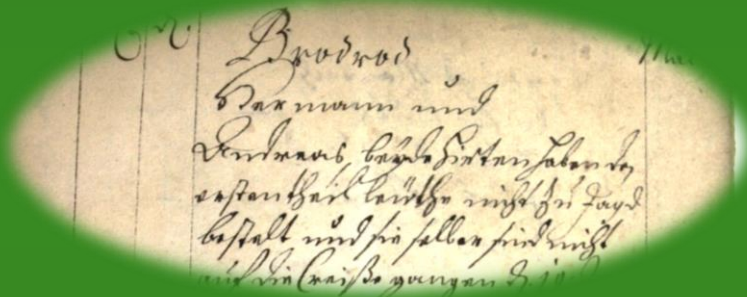 Brodrod
Hermann und
Andreas, beyde Hirten haben den
ersten theils leüthe nicht zu Jagd
bestelt und sie selber sind nicht
auf die Creiße gangen d.